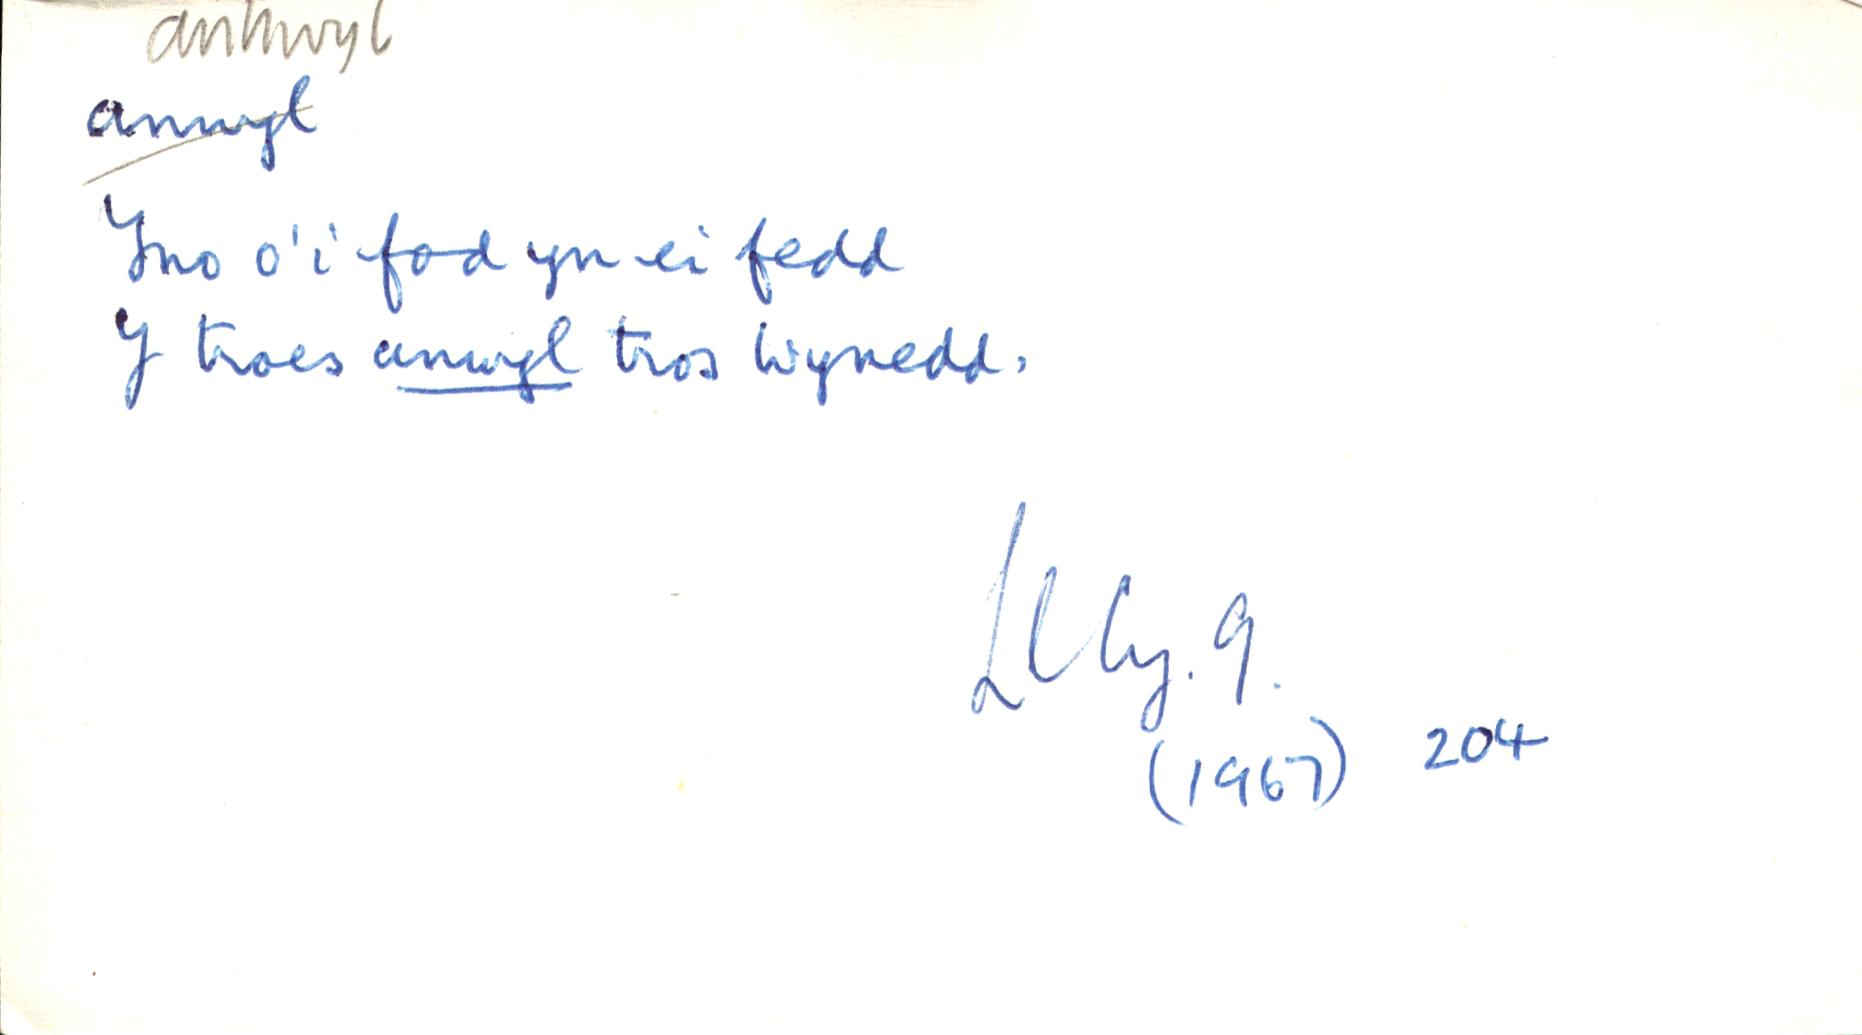 anhwyl
anwyl
Yno o'i fod yn ei fedd
Y troes anwyl tros Wynedd.
LlCy. 9.
(1967) 204